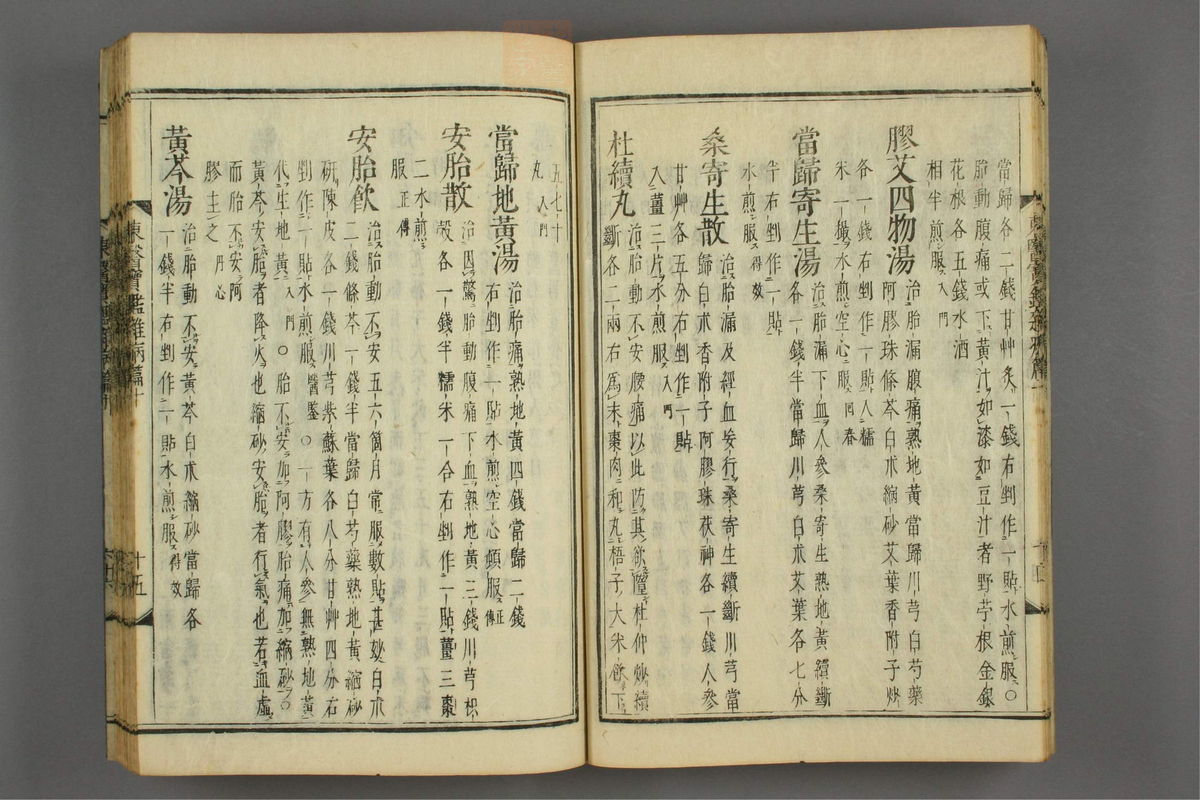 當歸各二錢甘艸炙一錢右剉作一貼水煎服○
胎動腹痛或下黃汁如漆如豆汁者野苧根金銀
花根各五錢水酒
相半煎服入門
膠艾四物湯
治胎漏腹痛熟地黃當歸川芎白芍藥
阿膠珠條芩白朮縮砂艾葉香附子炒
各一錢右剉作一貼入糯
米一撮水煎空心服回春
當歸寄生湯
治胎漏下血人參桑寄生熟地黃續斷
各一錢半當歸川芎白朮艾葉各七分
半右剉作一貼
水煎服得效
桑寄生散
治胎漏及經血妄行桑寄生續斷川芎當
歸白朮香附子阿膠珠茯神各一錢人參
甘艸各五分右剉作一貼
入薑三片水煎服入門
杜續丸
治胎動不安腰痛以此防其欲墮杜仲炒續
斷各二兩右爲末棗肉和丸梧子大米飮下
五七十
丸入門
當歸地黃湯
治胎痛熟地黃四錢當歸二錢
右剉作一貼水煎空心頓服正傳
安胎散
治因驚胎動腹痛下血熟地黃三錢川芎枳
殼各一錢半糯米一合右剉作一貼薑三棗
二水煎
服正傳
安胎飮
治胎動不安五六箇月常服數貼甚妙白朮
二錢條芩一錢半當歸白芍藥熟地黃縮砂
硏陳皮各一川錢芎紫蘇葉各八分甘艸四分右
剉作一貼水煎服醫鑒○一方有人參無熟地黃
代生地黃入門○胎不安加阿膠胎痛加縮砂○
黃芩安胎者降火也縮砂安胎者行氣也若血虛
而胎不安阿
膠主之丹心
黃芩湯
治胎動不安黃芩白朮縮砂當歸各
一錢半右剉作一貼水煎服得效
東醫寶鑑雜病篇十
十五